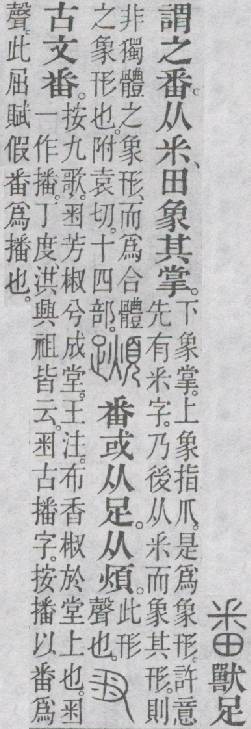 番獸足
謂之番。从釆、田象其掌。
下象掌。上象指爪。是爲象形。許意
先有釆字。乃後从釆而象其形。則
非獨體之象形、而爲合體
之象形也。附袁切。十四部。
番或从足。从煩。
此形
聲也。
古文番。
按九歌。芳椒兮成堂。王注。布香椒於堂上也。
一作播。丁度洪興祖皆云。古播字。按播以番爲
聲。此屈賦假番爲播也。